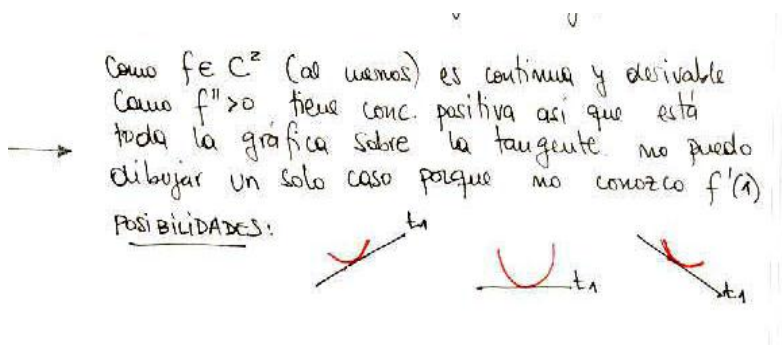 Como f ∈ C² (al menos) es continua y derivable
Como f">0 tiene conc. positiva así que está
toda la gráfica sobre la tangente. no puedo
dibujar un solo caso porque no conozco f'(1)
POSIBILIDADES:
t₁
t₁
t₁